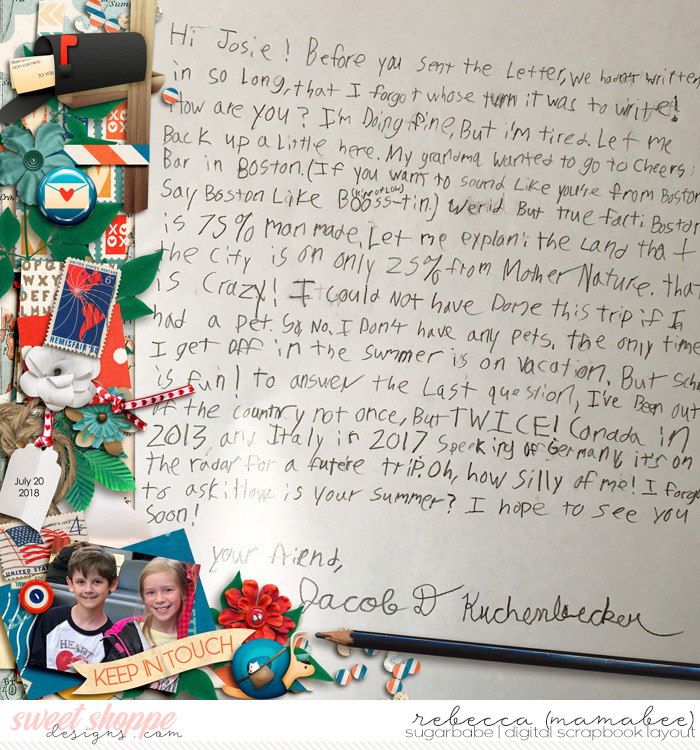 Hi Josie! Before you sent the Letter, we hadn't written
in so Long, that I forgot whose turn it was to write!
How are you? I'm Doing fine, But i'm tired. Let me
Back up a Little here. My grandma wanted to go to Cheers
Bar in Boston. (If you want to sound Like you're from Boston
Say Boston Like Booss-tin.) Werid But true fact: Boston
(kind of Low)
is 75% man made. Let me explani: the Land that
the city is on only 25% from Mother Nature. that
is crazy! I could Not have Done this trip if I
had a pet. So, No. I Don't have any pets. the only time
I get off in the summer is on vacation. But sch
is fun! to answer the Last question, I've Been out
of the country not once, But TWICE! Canada in
2013, and Italy in 2017. Speeking of Germany, it's on
the radar for a future trip. Oh, how silly of me! I forgo
to ask: How is your summer? I hope to see you
soon!
your friend,
Jacob D Kuchenbecker
TO YOU
XOXO
UNITED STATES POSTAGE
6¢
HEMISFAIR '68
July 20
2018
4¢
HEART
KEEP IN TOUCH
sweet shoppe
designs.com
rebecca (mamabee)
sugarbabe | digital scrapbook layout